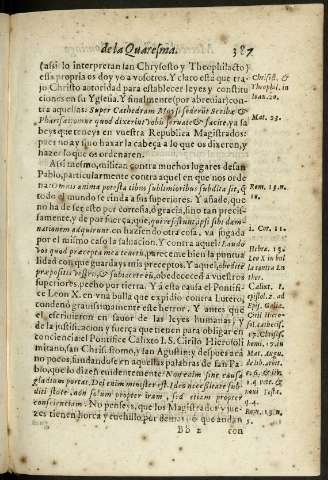 de la Quaresma. 387
(assi lo interpretan san Chrysosto y Theophilacto) y
essa propria os doy yo a vosotros. Y claro està que tra
jo Christo autoridad para establecer leyes y constitu
ciones en su Yglesia. Y finalmente (por abreviar) con-
tra aquellas: Super Cathedram Moysi sederūt Scribæ &
Pharisæi: omnia quæ dixerint vobis servate & facite, ya sa
beys que teneys en vuestra Republica Magistrados:
pues no ay sino baxar la cabeça a lo que os dixeren, y
hazer lo que os ordenaren.
Assi mismo, militan contra muchos lugares de san
Pablo, particularmente contra aquel en que nos orde
na: Omnis anima potestatibus sublimioribus subdita sit, q̄
todo el mundo se rinda a sus superiores. Y añade, que
no ha de ser esto por cortesia, o gracia, sino tan precis-
samente, y de por fuerça, que, qui resistunt ipsi sibi dam-
nationem adquirunt, en haziendo otra cosa, va jugada
por el mismo caso la salvacion. Y contra aquel: Laudo
vos quod præcepta mea tenetis, pareceme bien la puntua
lidad con que guardays mis preceptos. Y aquel, obedite
præpositis vestris, & subiacete eis, obedeced a vuestros
superiores, pecho por tierra. Y a esta causa el Pontifi-
ce Leon X. en vna bulla que expidio contra Lutero,
condenò gravissimamente este herror. Y antes que
el, escrivieron en favor de las leyes humanas, y
de la justificacion y fuerça que tienen para obligar en
conciencia el Pontifice Calixto I. S. Cirilo Hierosoli
mitano, san Chrisostomo, y san Agustin: y despues aca
no pocos, fundandose en aquellas palabras de san Pa-
blo, que lo dizen evidentemente: Non enim sine causa
gladium portat. Dei enim minister est. Ideo necessitate sub-
diti estote, non solum propter iram, sed etiam propter
conscientiam. No penseys, que los Magistrados y jue-
zes tienen horca y cuchillo, por demas, o que andan
Bb 2 con
Chrisost. &
Theophil. in
Ioan. 20.
Mat. 23.
Rom. 13. n.
1. Cor. 11.
Hebra. 13.
Leo X in bol
la contra Lu
ther.
Calixt. 1.
epistol. 2. ad
Epis. Galiæ
Mat. Augu.
Rom. 13. n.
5.